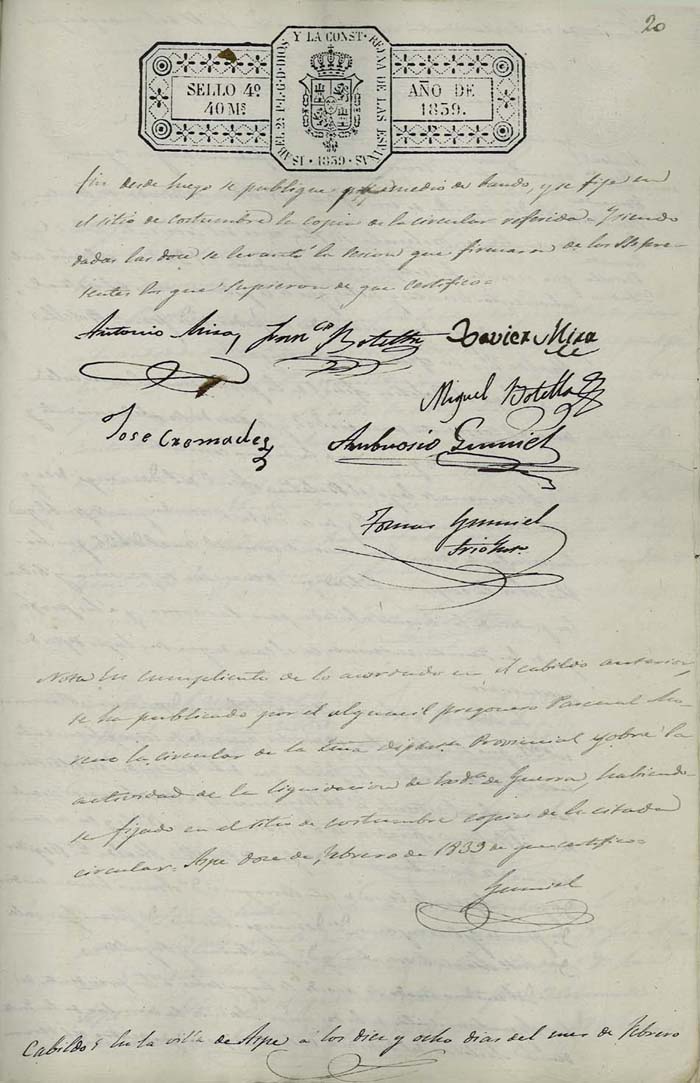 20
SELLO 4º
40 Ms
ISABEL 2ª P. L. G. D. DIOS Y LA CONST. REYNA DE LAS ESPAÑAS
1839
AÑO DE
1839.
fin desde luego se publique por medio de bando, y se fije en
el sitio de costumbre la copia de la circular referida. Y siendo
dadas las doce se levantó la sesion que firmaron de los SS. pre-
sentes los que supieron de que certifico=
Antonio Mira Botella Xavier Mira
Miguel Botella
Jose Cremades Ambrosio Gumiel
Tomas Gumiel
Srio
Nota En cumplimiento de lo acordado en el cabildo anterior,
se ha publicado por el alguacil pregonero Pascual Mo-
reno la circular de la Exma Diputn Provincial sobre la
actividad de la liquidacion de de Guerra, habiendo
se fijado en el sitio de costumbre copias de la citada
circular. Aspe doce de febrero de 1839 de que certifico=
Gumiel
Cabildo En la villa de Aspe á los diez y ocho dias del mes de febrero